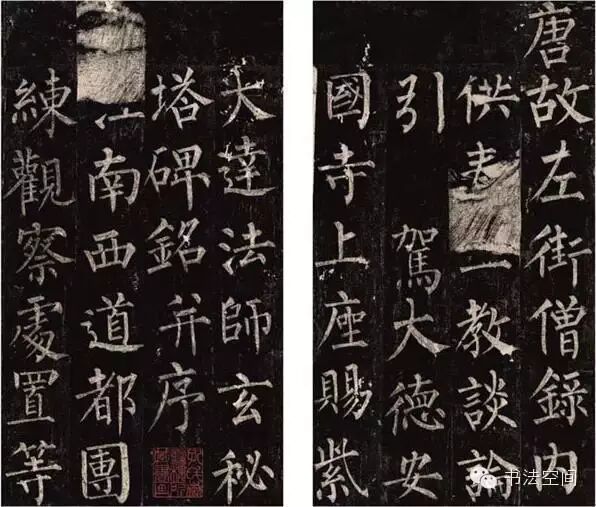 唐故左街僧錄內
供教談論
引駕大德安
國寺上座賜紫
大達法師玄秘
塔碑銘并序
南西道都團
練觀察處置等
书法空间